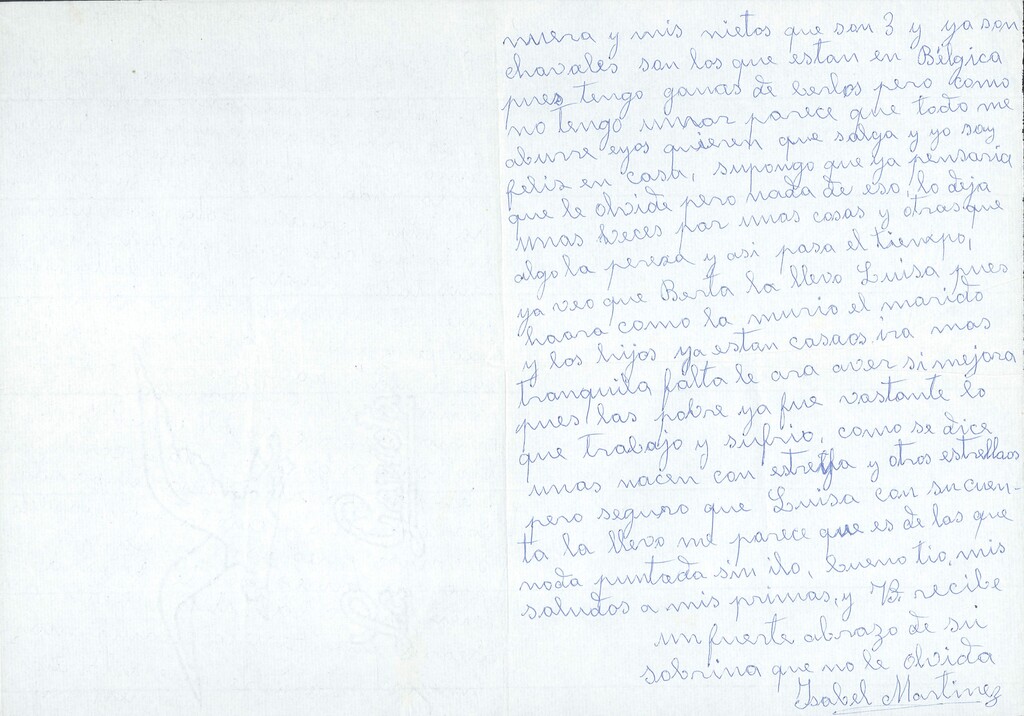 nuera y mis nietos que son 3 y ya son
chavales son los que estan en Bélgica
pues tengo ganas de berlos pero como
no tengo umor parece que todo me
aburre eyos quieren que salga y yo soy
felix en casa, supongo que ya pensaria
que le olvide pero nada de eso, lo deja
unas veces por unas cosas y otras que
algo la pereza y asi pasa el tiempo,
ya veo que Berta la llevo Luisa pues
haora como la murio el marido
y los hijos ya estan casaos ira mas
tranquila falta le ara aver si mejora
pues las pobre ya fue vastante lo
que trabajo y sufrio, como se dice
unas nacen con estrella y otros estrellaos
pero seguro que Luisa con su cuen-
ta la llevo me parece que es de las que
noda puntada sin ilo, bueno tio, mis
saludos a mis primas, y V. recibe
un fuerte abrazo de su
sobrina que no le olvida
Isabel Martinez